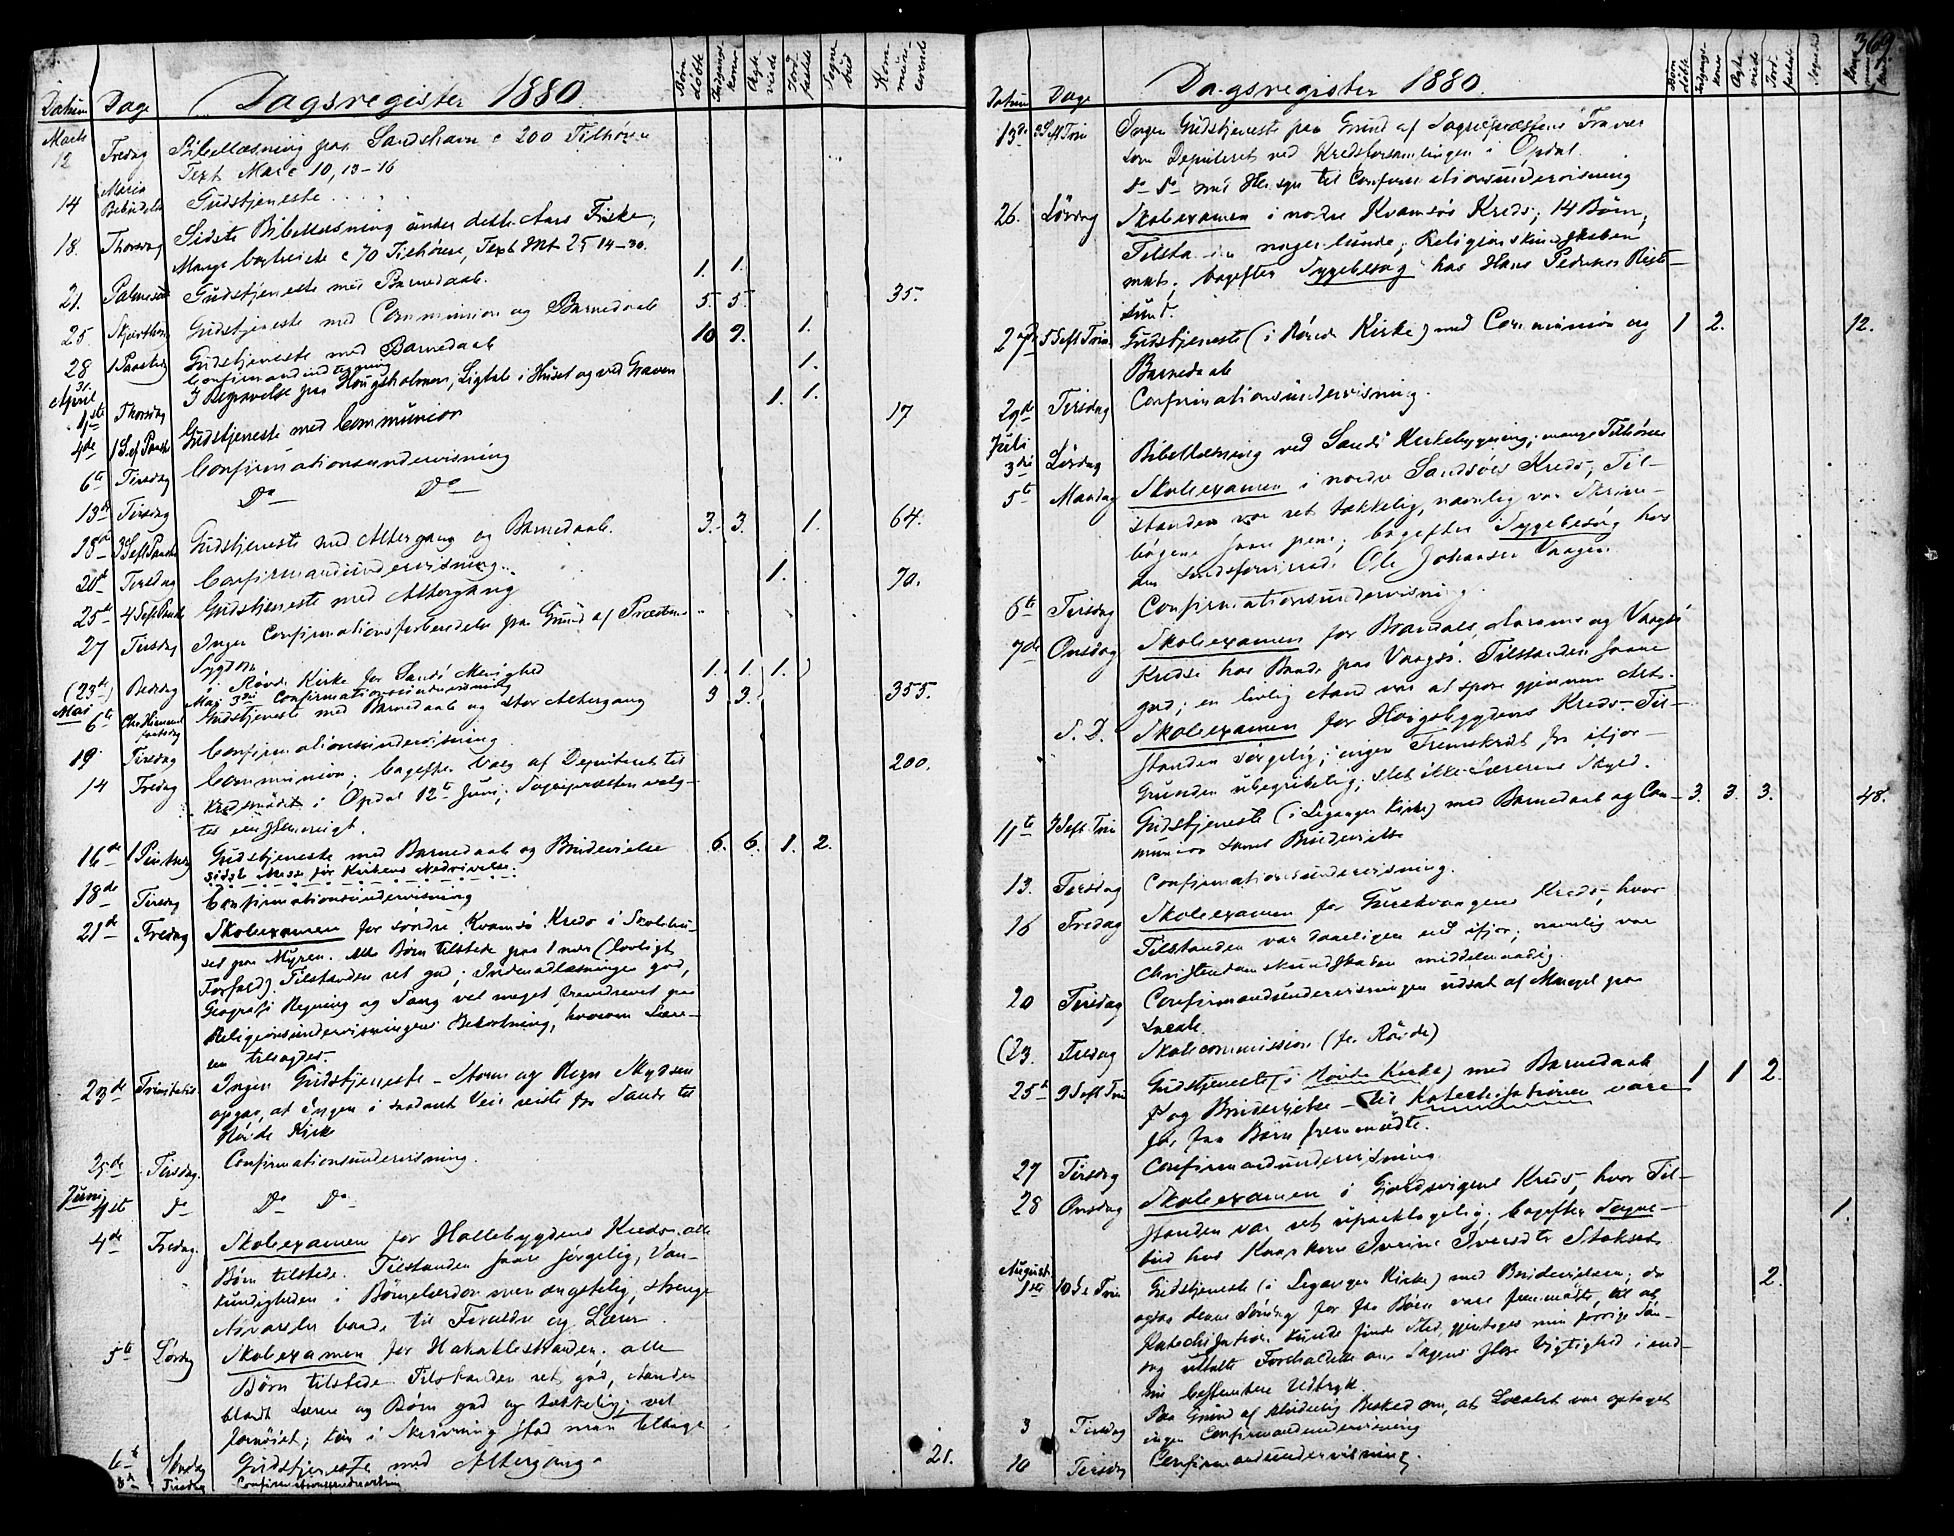 Datum Dage Dagsregister 1880. Børn døbte Indgangs koner Ægte viede Jord fæstet Sogne bud Kom muni cerende
Marts
12 Fredag Bibellæsning paa Sandshavn c 200 Tilhørere
Text Marc 10, 13-16
14 Maria Bebudelse Gudstjeneste
18. Thorsdag Sidste Bibellæsning under dette Aars Fiske,
Mange bortreiste c 70 Tilhørere, Text Mt 25 14-30.
21. Palmesønd Gudstjeneste med Barnedaab. 1. 1.
25. Skjærthors Gudstjeneste med Communion og Barnedaab 5. 5. 35.
28 1 Paaskedag Gudstjeneste med Barnedaab 10 9. 1.
31. Confirmandindtegning
April
1ste Thorsdag I Begravelse paa Haugsholmen, Ligtale i Huset og ved Graven 1.
4de 1 S. ef Paaske Gudstjeneste med Communion 1. 1. 17
6te Tirsdag Confirmationsundervisning
13de Tirsdag Do Do
18de 3 S eft Paaske Gudstjeneste med Altergang og Barnedaab. 3. 3. 1. 64.
20de Tirsdag Confirmandundervisning.
25te 4 S eft Paaske Gudstjeneste med Altergang 1. 70.
27 Tirsdag Ingen Confirmationsforberedelse paa Grund af Præstens
Sygdom
(23de) Bededag i Røvde Kirke for Sands Menighed 1. 1. 1.
Mai Mai 3die Confirmationsundervisning
6te Chr Himmelfartsdag Gudstjeneste med Barnedaab og stor Altergang 3 3. 355.
19 Tirsdag Confirmationsundervisning.
14 Fredag Communion; bagefter Valg af Deputeret til 200.
Kredsmødet i Opdal 12te Juni; Sognepræsten valg-
tes eenstemmigt.
16de 1 Pintsedag Gudstjeneste med Barnedaab og Brudevielse 6. 6. 1. 2.
sidste Messe før Kirkens Nedrivelse.
18de Tirsdag Confirmationsundervisning
21de Fredag Skoleexamen for søndre Kvamsø Kreds i Skolehu-
set paa Myren. Alle Børn tilstede paa 1 nær (lovligt
Forfald). Tilstanden ret god; Indenadlæsningen god,
Geografi Regning og Sang vel meget fremdrevet paa
Religionsundervisningens Bekostning, hvorom Lære-
ren tilsagdes.
23de Trinitatis Ingen Gudstjeneste - Storm og Regn Skydsen
opgav, at Ingen i saadant Veir reiste fra Sands til
Røvde Kirke
25de Tirsdag. Confirmationsundervisning.
Juni
1ste do Do Do
4de Fredag. Skoleexamen for Hallebygdens Kreds. alle
Børn tilstede. Tilstanden saare sørgelig, Van-
kundigheden i Børnelærdommen ængstelig, strenge
Advarsler baade til Forældre og Lærer.
5te Lørdag Skoleexamen for Hakallestranden. alle
Børn tilstede. Tilstanden ret god, Aanden
blandt Lærer og Børn god og tækkelig; vel
fornøiet; kun i Skrivning stod man tilbage
6te Søndag Gudstjeneste med Altergang. 21.
8de Tirsdag Confirmationsundervisning
369
Datum Dage Dagsregister 1880. Børn døbte Indgangs koner Ægte viede Jord fæstet Sognebud
13de 3 S eft Trin Ingen Gudstjeneste paa Grund af Sognepræstens Fravær
som Deputeret ved Kredsforsamlingen i Opdal.
Do Do med Hensyn til Confirmationsundervisning
26. Lørdag Skoleexamen i nordre Kvamsøs Kreds; 14 Børn,
Tilstanden nogenlunde; Religionskundskaben
mat; bagefter Sygebesøg hos Hans Pedersen Rist-
sund.
27de 5 S eft Trin Gudstjeneste (i Røvde Kirke) med Communion og 1 2. 12.
Barnedaab
29de Tirsdag Confirmationsundervisning.
Juli
3die Lørdag Bibellæsning ved Sands Kirkebygning; mange Tilhørere
5te Mandag Skoleexamen i nordre Sandsøes Kreds, Til-
standen var ret tækkelig, navnlig var Skrive-
bøgene saare pene; bagefter Sygebesøg hos
den sindsforvirrede Ole Johansen Vaagen.
6te Tirsdag Confirmationsundervisning.
7de Onsdag Skoleexamen for Brandals, Aarams og Vaagsø
Kredse hos Bernt paa Vaagsø. Tilstanden saare
god; en livlig Aand var at spore gjennem Alt.
S. D. Skoleexamen for Haugsbygdens Kreds - Til-
standen sørgelig; ingen Fremskridt fra ifjor -
Grunden ubegribelig; slet ikke Lærerens Skyld.
11te 7 S eft Trin Gudstjeneste (i Leganger Kirke) med Barnedaab og Com- 3. 3. 3. 48.
munion samt Brudevielse
13. Tirsdag Confirmationsundervisning.
16 Fredag Skoleexamen for Gurskvaagens Kreds, hvor
Tilstanden var daarligere end ifjor; navnlig var
Christendomskundskaben middelmaadig.
20 Tirsdag Confirmandsundervisningen udsat af Mangel paa
Locale.
(23. Fredag Skolecommission (for Røvde)
25te 9 S eft Trin Gudstjeneste (i Røvde Kirke) med Barnedaab 1 1 2.
og Brudevielse - til Katechisationen vare
for faa Børn fremmødte.
27 Tirsdag Confirmandundervisning
28 Onsdag Skoleexamen i Gjerdsvigens Kreds, hvor Til-
standen var ret upaaklagelig; bagefter Sogne- 1.
bud hos Kaarkone Iverine Iversdtr Stokset.
August
1ste 10 S e Trin Gudstjeneste (i Leganger Kirke) med Brudevielsen; da 2.
ogsaa denne Søndag for faa Børn vare fremmødte til at
Katechisation kunde finde Sted, gjentoges min forrige Søn-
dag udtalte Foreholdelse om Sagens store Vigtighed i end-
nu bestemtere Udtryk
3 Tirsdag Paa Grund af skriftelig Besked om, at Localet var optaget
ingen Confirmandundervisning
10 Tirsdag Confirmandundervisning.